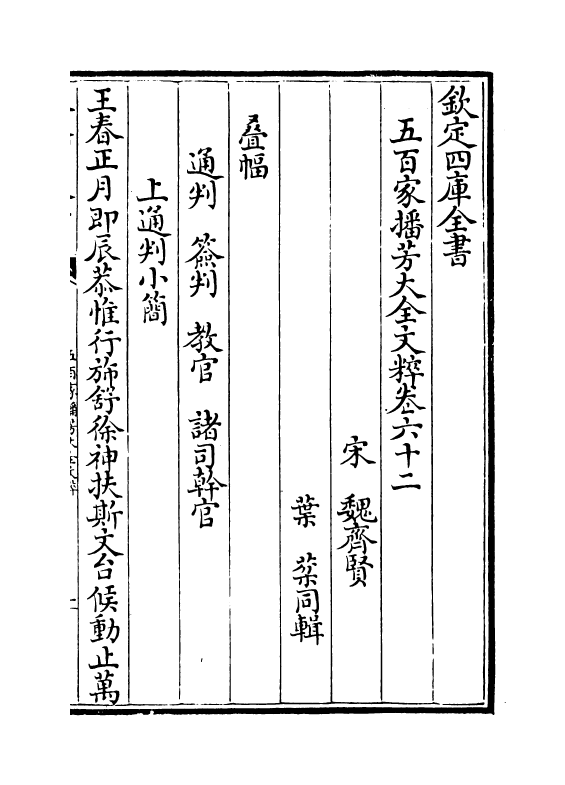 欽定四庫全書
五百家播芳大全文粹卷六十二
宋 魏齊賢
葉棻同輯
疊幅
通判 簽判 教官 諸司幹官
上通判小簡
王春正月即辰恭惟行斾舒徐神扶斯文台候動止萬